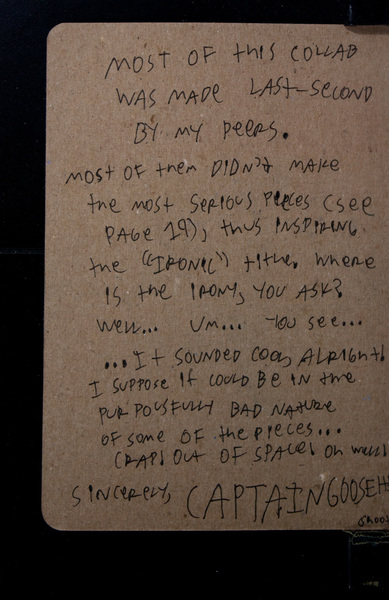 MOST OF this COLLAB
WAS MADE LAST-SECOND
BY MY PEERS.
MOST OF them DIDN'T MAKE
the most SERIOUS PIECES (see
PAGE 19), thus INSPIRING
the ("IRONIC") title. Where
IS the IRONY, YOU ASK?
Well... UM... You see...
...It SOUNDED COOL, ALRIGHT!
I SUPPOSE It COULD BE IN the
PURPOUSFULLY BAD NATURE
OF some OF the PIECES...
CRAP! OUT OF SPACE! Oh well!
SINCERELY, CAPTAINGOOSEH